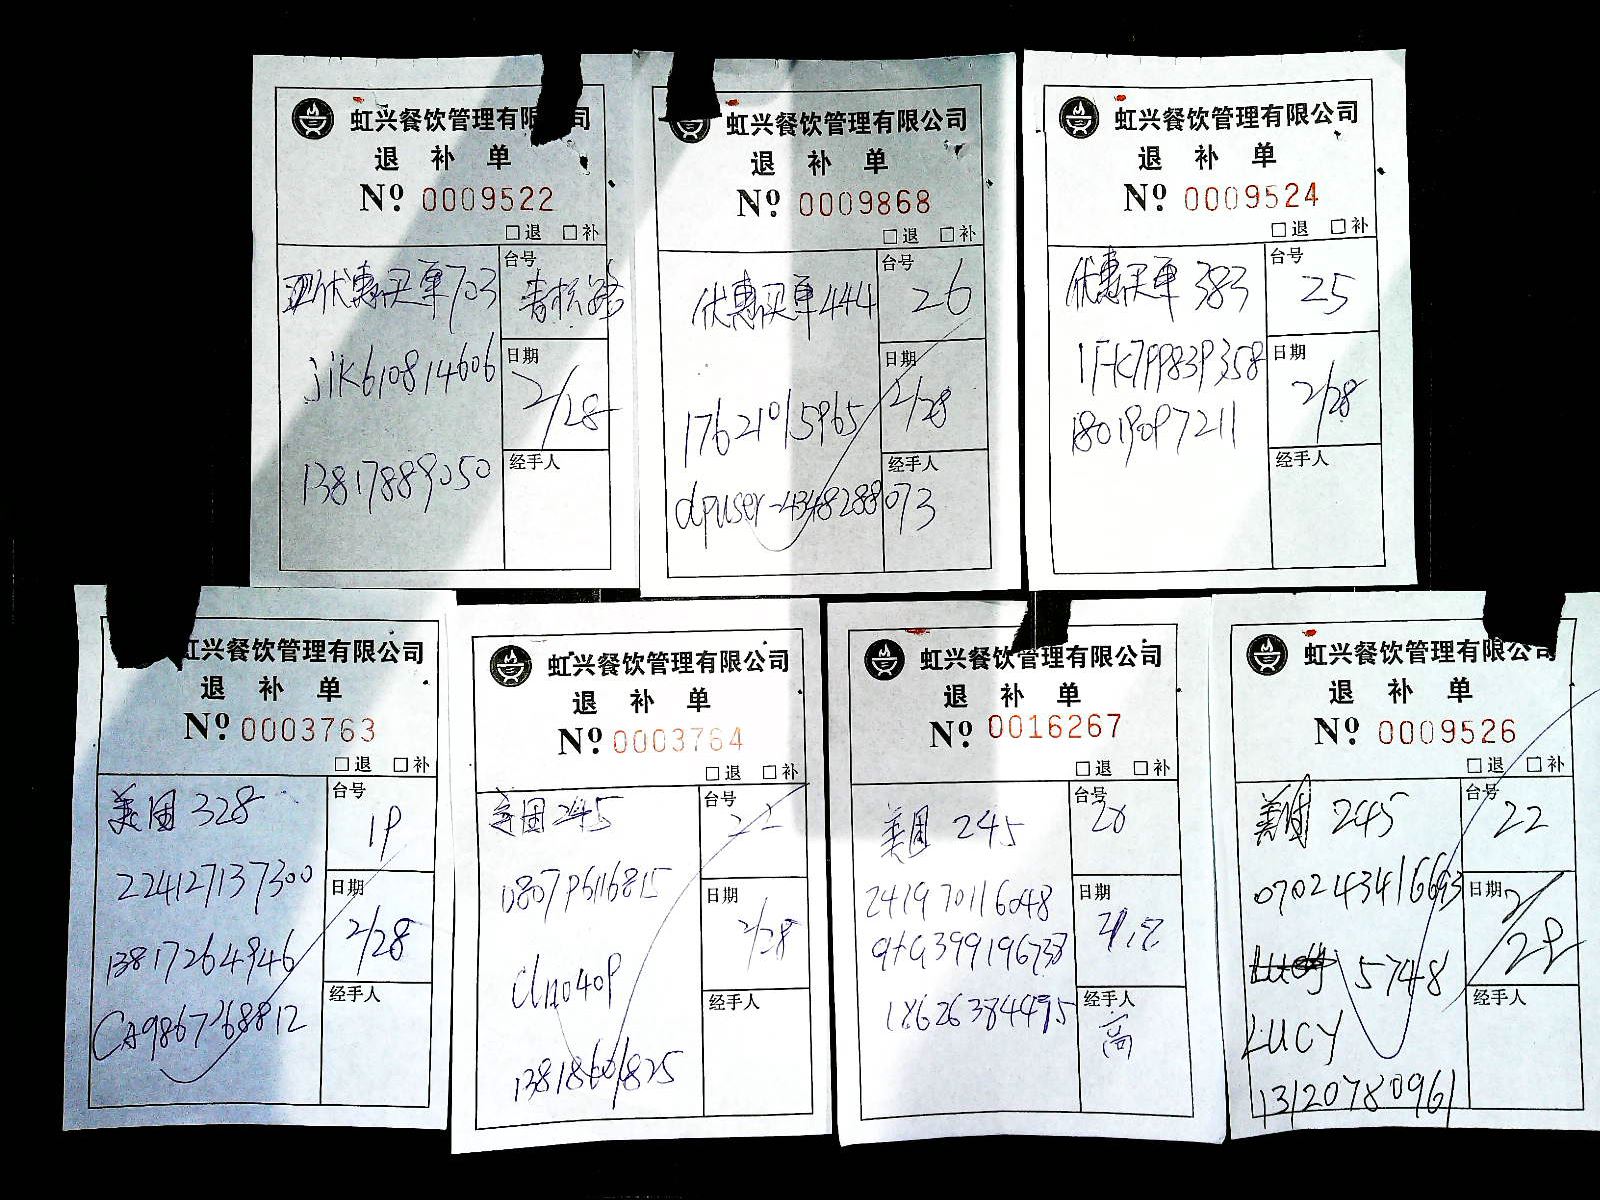 虹兴餐饮管理有限公司
退 补 单
Nº 0009522
□退 □补
优惠买单703
台号
jik610814606
日期
2/28
13817889050
经手人
虹兴餐饮管理有限公司
退 补 单
Nº 0009868
□退 □补
优惠买单444
台号
26
17621015965
日期
2/28
经手人
dpuser-4348288073
虹兴餐饮管理有限公司
退 补 单
Nº 0009524
□退 □补
优惠买单 383
台号
25
日期
2/28
18019097211
经手人
虹兴餐饮管理有限公司
退 补 单
Nº 0003763
□退 □补
美团 328
台号
19
224127137300
日期
2/28
13817264946
经手人
CA9867268812
虹兴餐饮管理有限公司
退 补 单
Nº 0003764
□退 □补
美团 245
台号
22
080796116815
日期
2/28
经手人
虹兴餐饮管理有限公司
退 补 单
Nº 0016267
□退 □补
美团 245
台号
241970116048
日期
18626384495
经手人
高
虹兴餐饮管理有限公司
退 补 单
Nº 0009526
□退 □补
美团 245
台号
22
070243416693
日期
2/29
5748
经手人
LUCY
13120780961